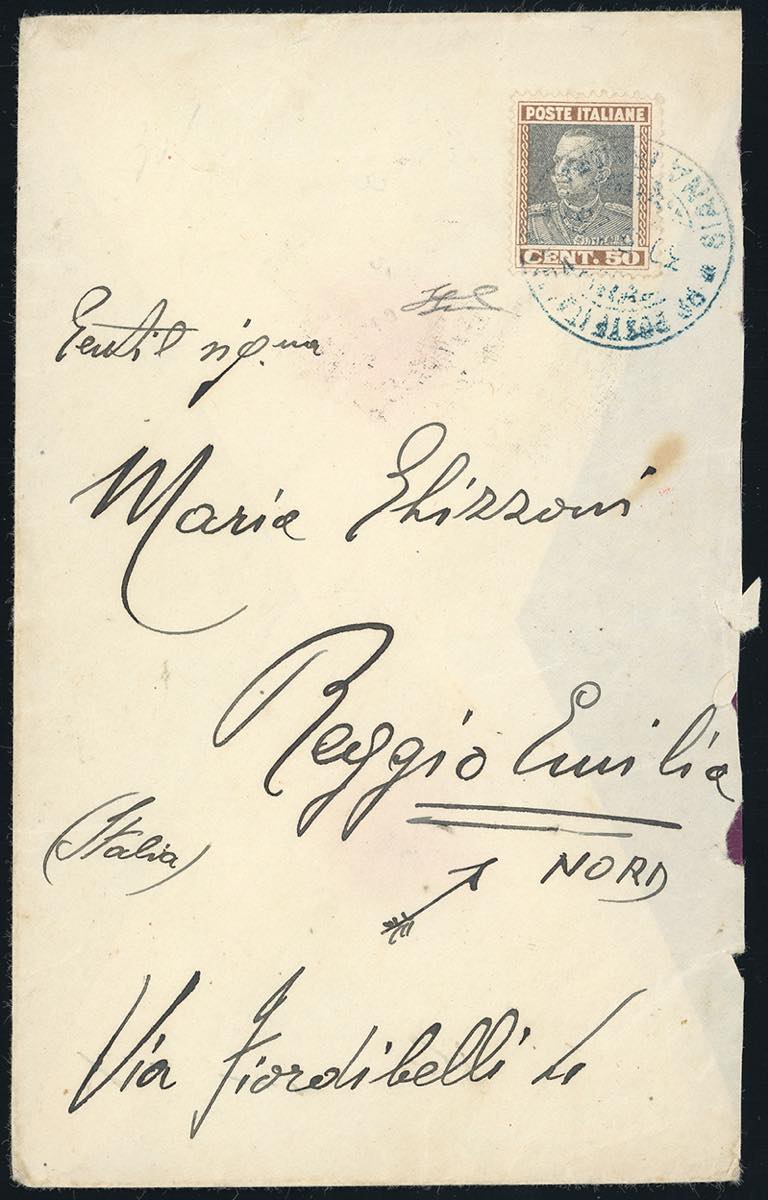 POSTE ITALIANE
CENT. 50
Gentil sig.na
Maria Ghizzoni
Reggio Emilia
(Italia)
NORD
Via Fiordibelli